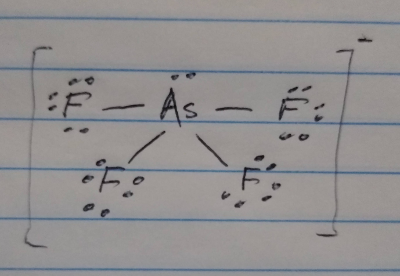 [F — As — F]⁻
F F